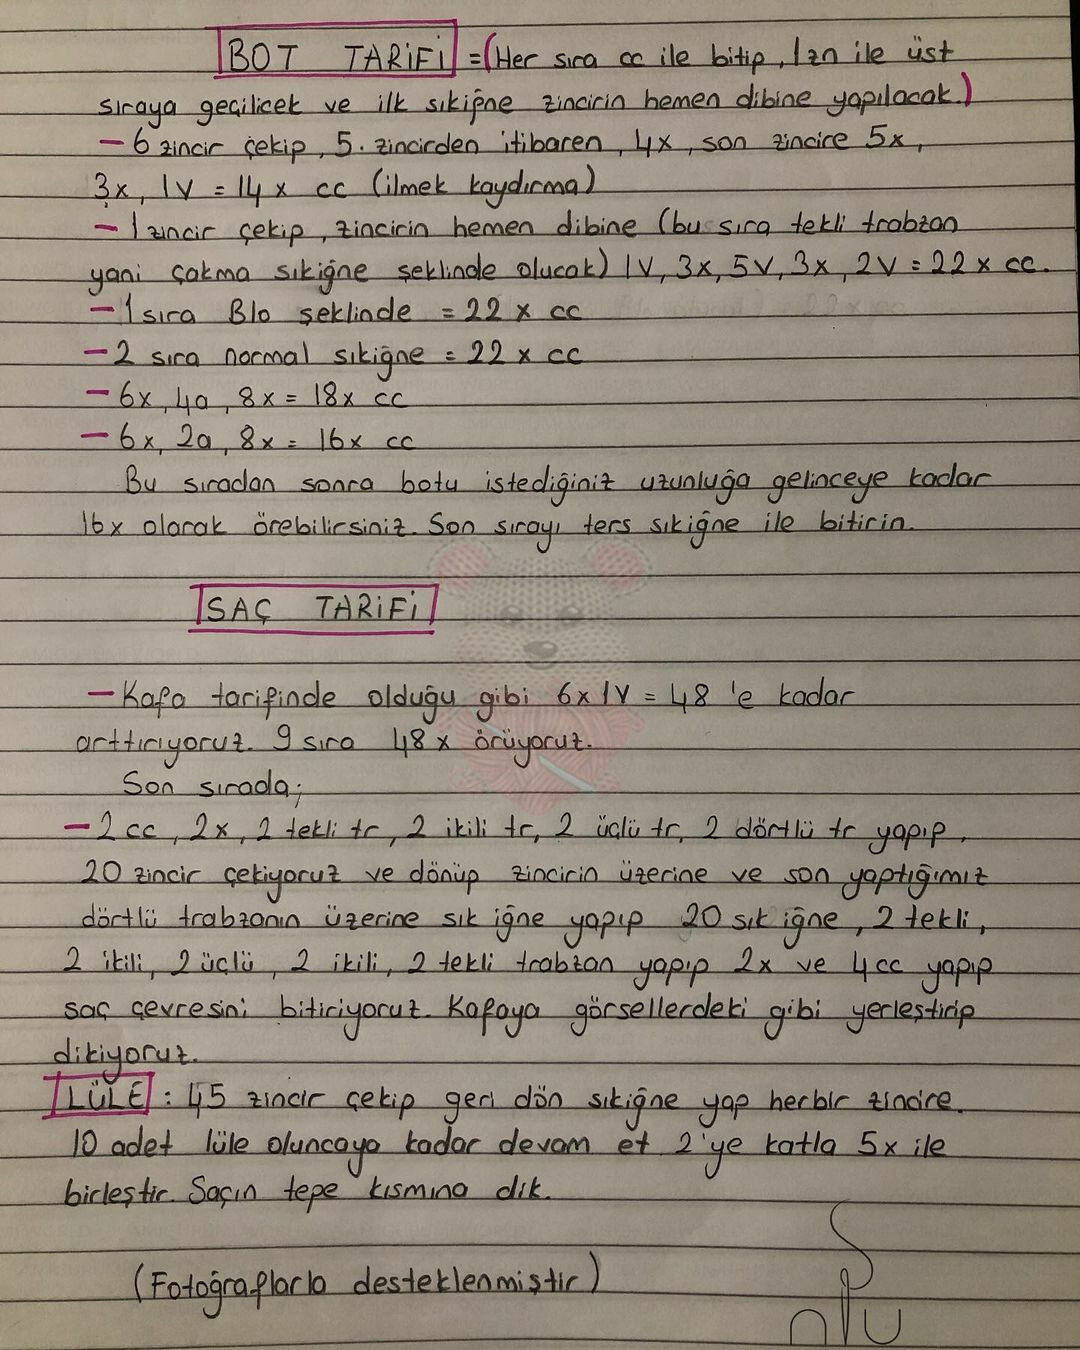 BOT TARİFİ =(Her sıra cc ile bitip, 1zn ile üst
sıraya geçilicek ve ilk sıkiğne zincirin hemen dibine yapılacak.)
- 6 zincir çekip, 5. zincirden itibaren, 4x, son zincire 5x,
3x, 1V = 14x cc (ilmek kaydırma)
- 1 zincir çekip, zincirin hemen dibine (bu sıra tekli trabzan
yani çakma sıkiğne şeklinde olucak) 1V, 3x, 5V, 3x, 2V = 22x cc.
- 1 sıra Blo şeklinde = 22 x cc
- 2 sıra normal sıkiğne = 22 x cc
- 6x, 4a, 8x = 18x cc
- 6x, 2a, 8x = 16x cc
Bu sıradan sonra botu istediğiniz uzunluğa gelinceye kadar
16x olarak örebilirsiniz. Son sırayı ters sıkiğne ile bitirin.
SAÇ TARİFİ
- Kafa tarifinde olduğu gibi 6x1V = 48 'e kadar
arttırıyoruz. 9 sıra 48x örüyoruz.
Son sırada;
- 2 cc, 2x, 2 tekli tr, 2 ikili tr, 2 üçlü tr, 2 dörtlü tr yapıp,
20 zincir çekiyoruz ve dönüp zincirin üzerine ve son yaptığımız
dörtlü trabzanın üzerine sık iğne yapıp 20 sık iğne, 2 tekli,
2 ikili, 2 üçlü, 2 ikili, 2 tekli trabzan yapıp 2x ve 4cc yapıp
saç çevresini bitiriyoruz. Kafaya görsellerdeki gibi yerleştirip
dikiyoruz.
LÜLE : 45 zincir çekip geri dön sıkiğne yap herbir zincire.
10 adet lüle oluncaya kadar devam et 2'ye katla 5x ile
birleştir. Saçın tepe kısmına dik.
(Fotoğraflarla desteklenmiştir)